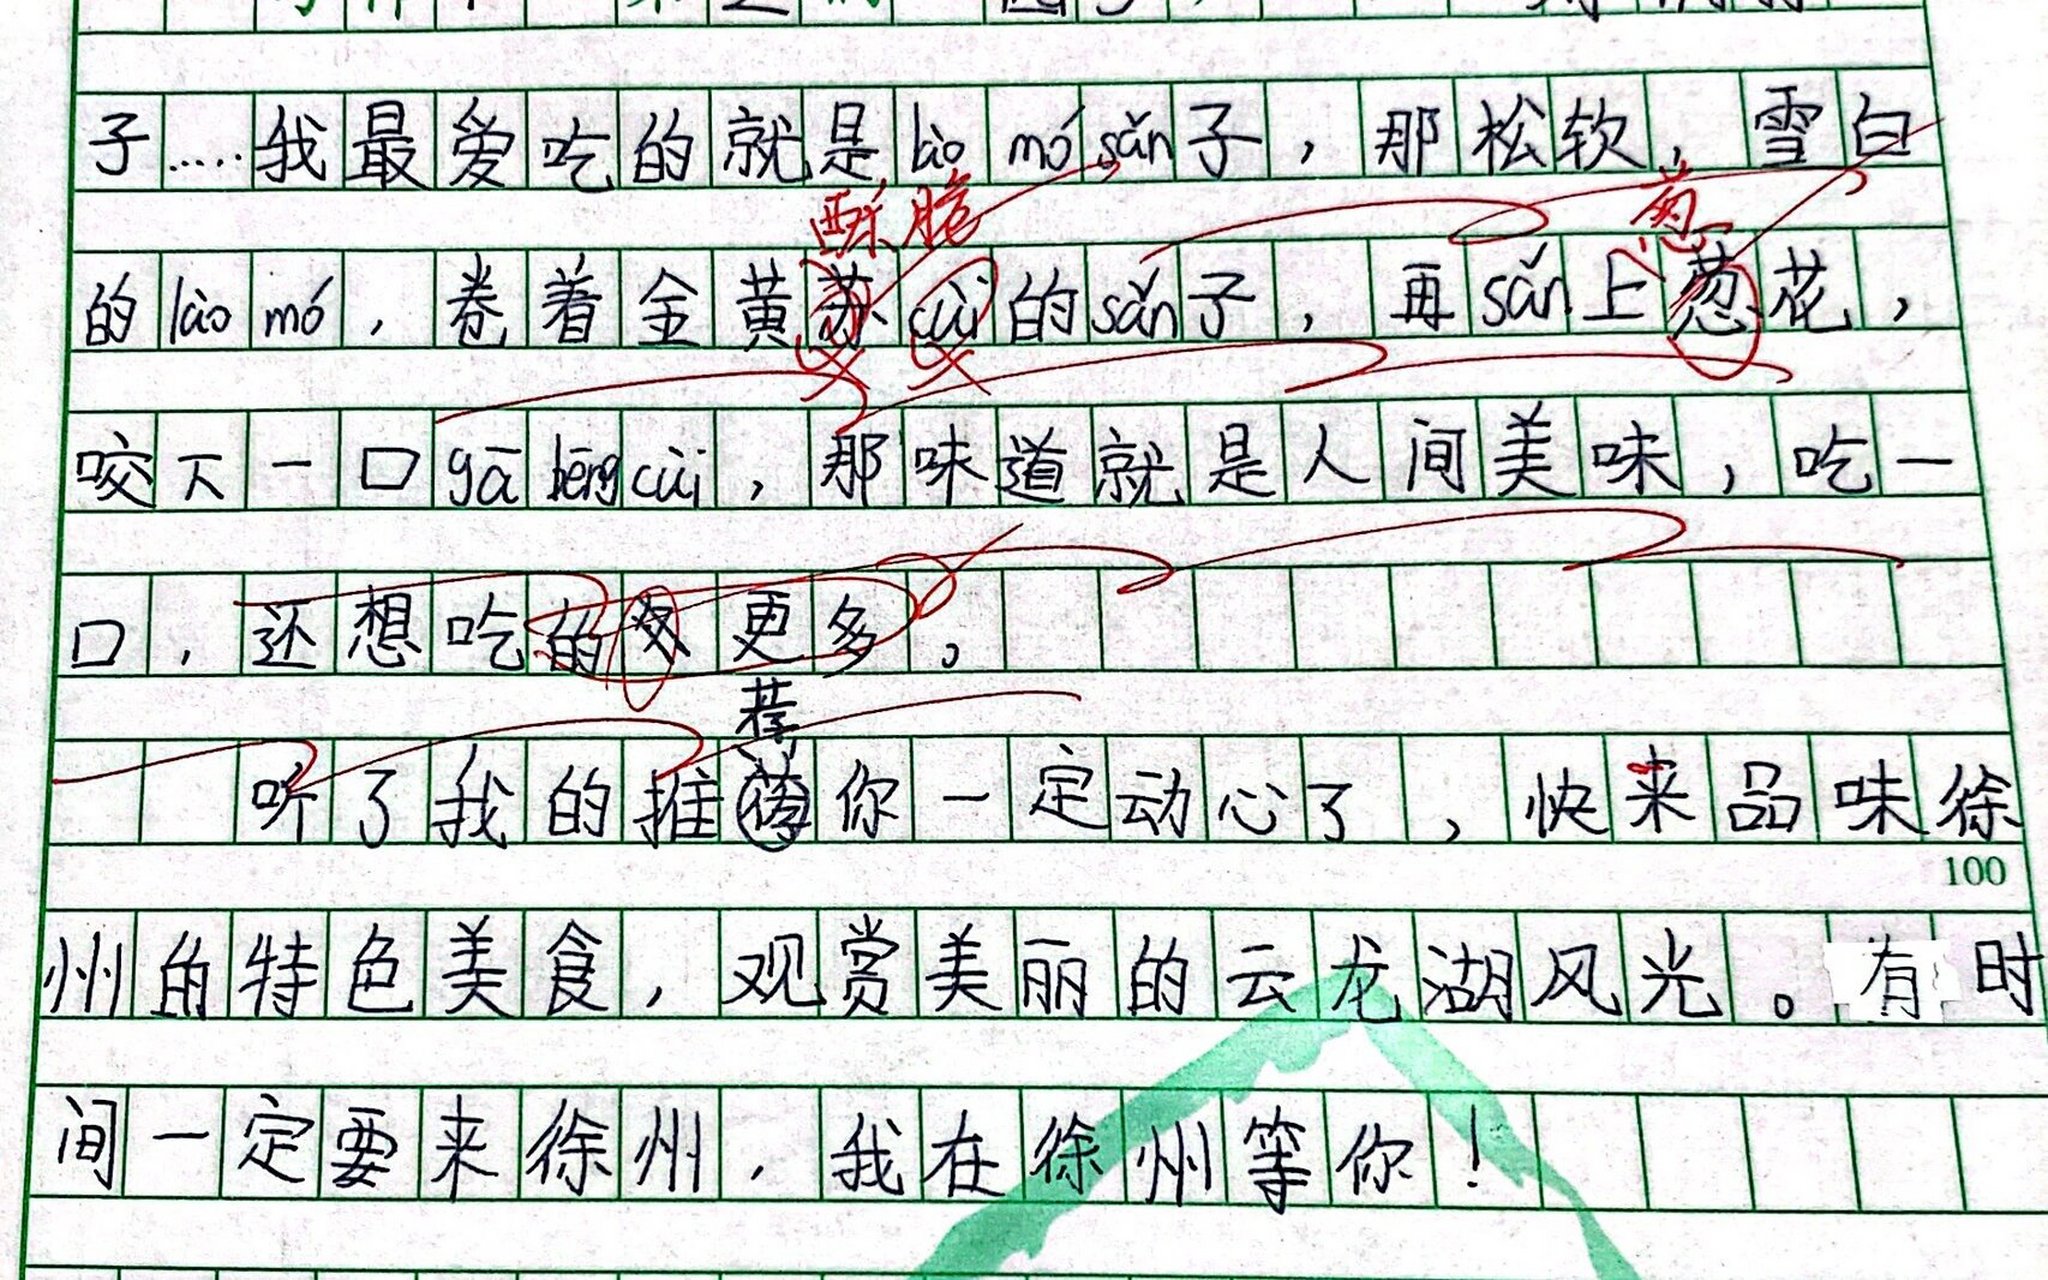 子……我最爱吃的就是lào mó sǎn子，那松软，雪白
酥脆 葱
的lào mó，卷着金黄苏cùi的sǎn子，再sǎn上葱花，
咬下一口gā bēng cùi，那味道就是人间美味，吃一
口，还想吃的更多。
荐
听了我的推你一定动心了，快来品味徐
100
州的特色美食，观赏美丽的云龙湖风光。有时
间一定要来徐州，我在徐州等你！